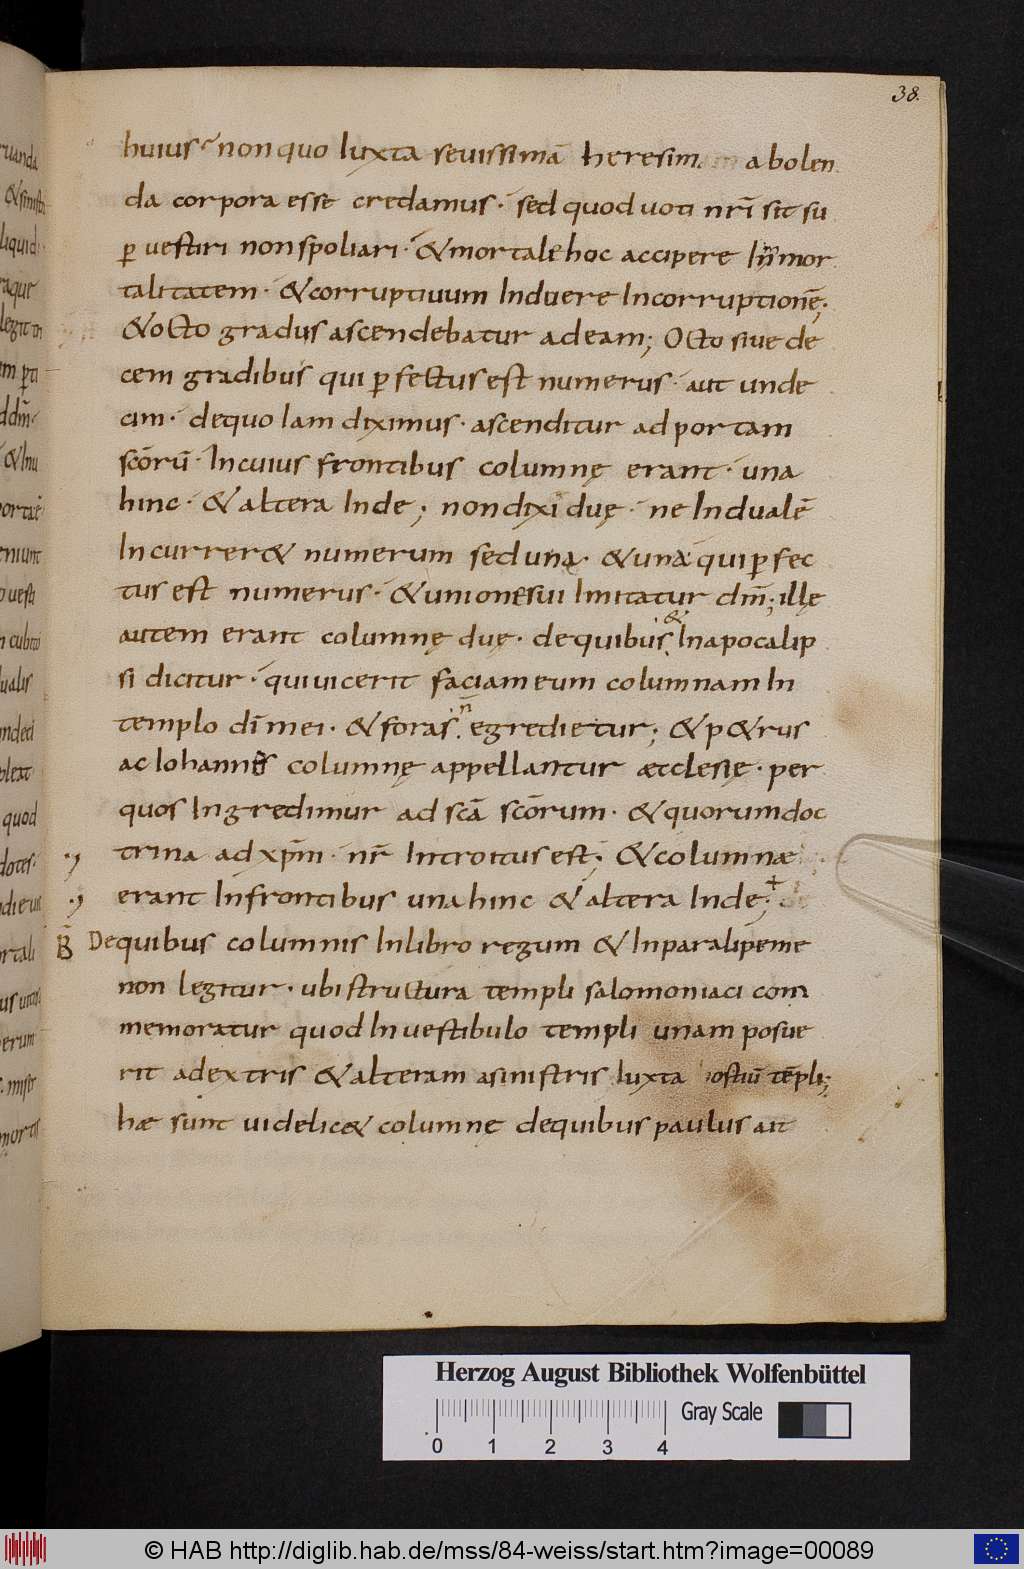 38.
huius· non quo Iuxta seuissimā heresim abolen
da corpora esse credamus· sed quod uoti nr̄i sit su
ꝑ uestiri non spoliari· &mortale hoc accipere Inmor
talitatem· &corruptiuum Induere Incorruptionē;
&octo gradus ascendebatur adeam; Octo siue de
cem gradibus qui ꝑfectus est numerus· aut unde
cim· dequo Iam diximus· ascenditur adportam
scōrū· Incuius frontibus columnę erant· una
hinc· &altera Inde; nondixi duę· ne Indualē
Incurrer& numerum sed una· &una qui ꝑfec
tus est numerus· &unionē sui Imitatur dm̄; illę
autem erant columnę duę· dequibus & Inapocalip
si dicitur· qui uicerit faciam eum columnam In
templo dī mei· &foras n̄ egredietur; &p&rus
ac Iohannes columnę appellantur ætclesię· per
quos Ingredimur ad scā scōrum· &quorum doc
trina ad xpm̄· nr̄ Introitus est; &columnæ
erant Infrontibus una hinc &altera Inde;
B Dequibus columnis Inlibro regum &Inparalipeme
non legitur· ubi structura templi salomoniaci com
memoratur quod Inuestibulo templi unam posue
rit adextris &alteram asinistris Iuxta ostiū tēpli;
hæ sunt uidelic& columnę dequibus paulus ait
ruanda
liquid
raque
legit in
ddm̄·
&Inu
eniunt
ualis
undeci
quod
ortali
erum
mortis
Herzog August Bibliothek Wolfenbüttel
Gray Scale
0 1 2 3 4
© HAB http://diglib.hab.de/mss/84-weiss/start.htm?image=00089